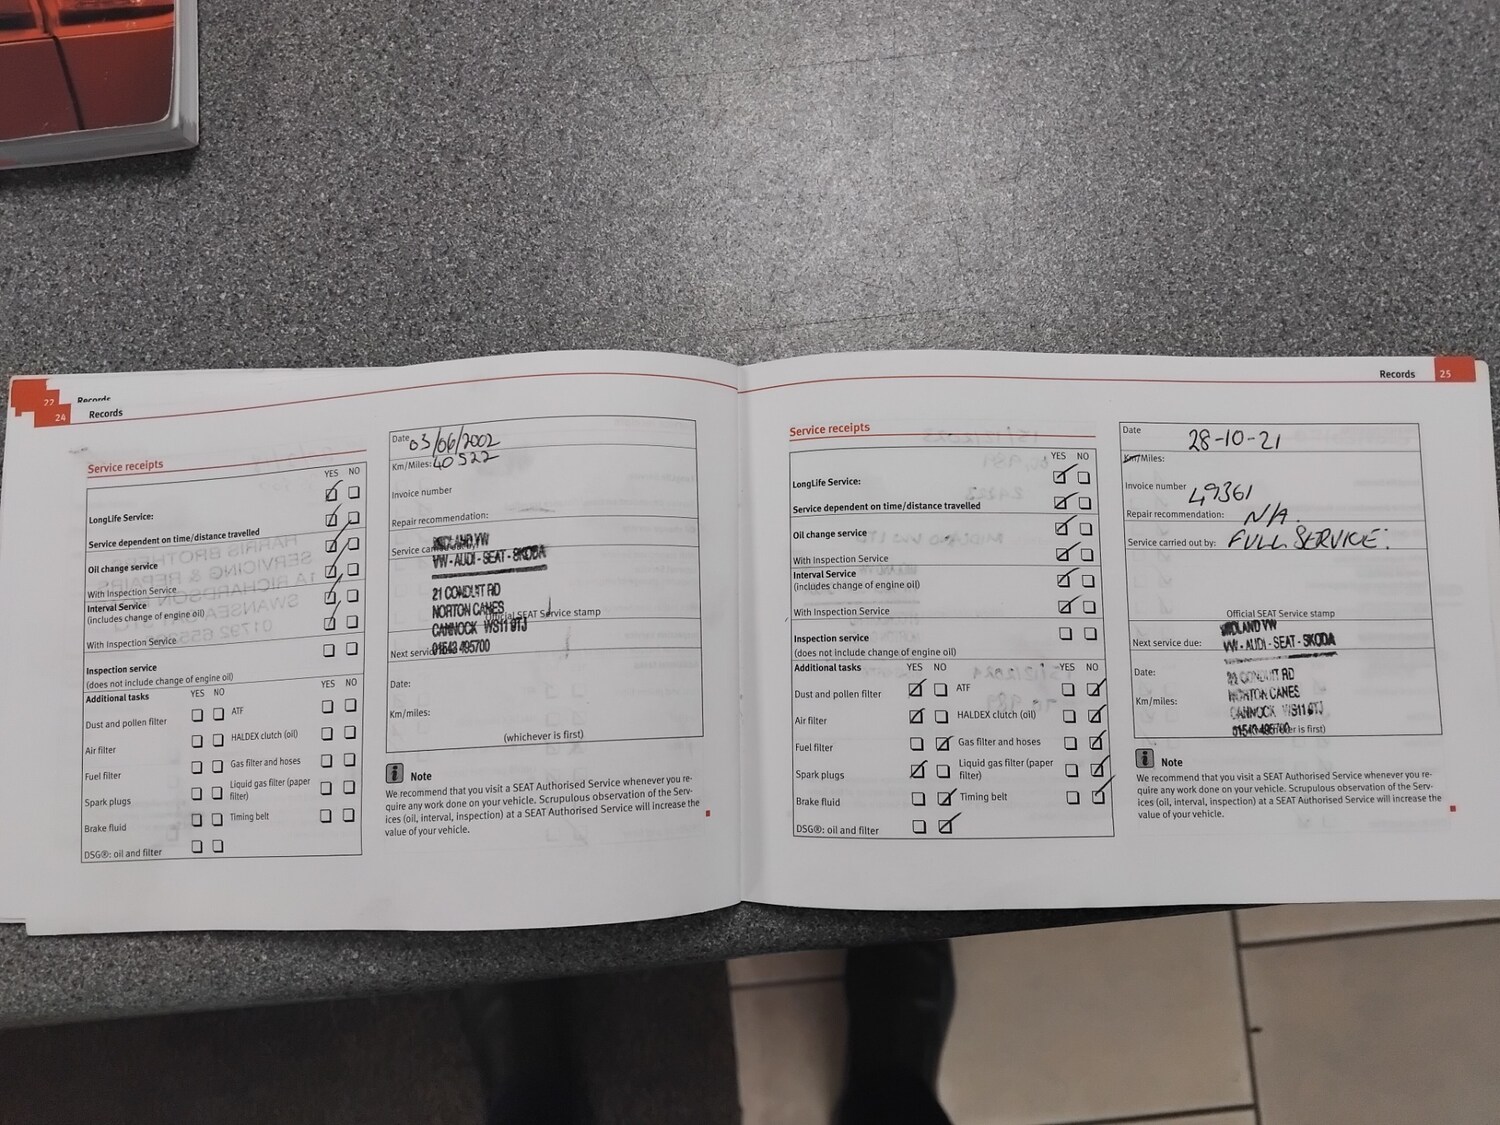 22 Records
24 Records
Service receipts
YES NO
LongLife Service:
Service dependent on time/distance travelled
Oil change service
With Inspection Service
Interval Service
(includes change of engine oil)
With Inspection Service
Inspection service
(does not include change of engine oil)
Additional tasks YES NO YES NO
Dust and pollen filter ATF
Air filter HALDEX clutch (oil)
Fuel filter Gas filter and hoses
Spark plugs Liquid gas filter (paper
filter)
Brake fluid Timing belt
DSG®: oil and filter
Date 03/06/2002
Km/Miles: 40522
Invoice number
Repair recommendation:
Service
MIDLAND VW
VW - AUDI - SEAT - SKODA
21 CONDUIT RD
NORTON CANES
Official SEAT Service stamp
CANNOCK WS11 9TJ
Next
01543 495700
Date:
Km/miles:
(whichever is first)
Note
We recommend that you visit a SEAT Authorised Service whenever you re-
quire any work done on your vehicle. Scrupulous observation of the Serv-
ices (oil, interval, inspection) at a SEAT Authorised Service will increase the
value of your vehicle.
Records 25
Service receipts
YES NO
LongLife Service:
Service dependent on time/distance travelled
Oil change service
With Inspection Service
Interval Service
(includes change of engine oil)
With Inspection Service
Inspection service
(does not include change of engine oil)
Additional tasks YES NO YES NO
Dust and pollen filter ATF
Air filter HALDEX clutch (oil)
Fuel filter Gas filter and hoses
Spark plugs Liquid gas filter (paper
filter)
Brake fluid Timing belt
DSG®: oil and filter
Date 28-10-21
Km/Miles:
Invoice number 49361
Repair recommendation: N/A.
Service carried out by: FULL SERVICE.
Official SEAT Service stamp
MIDLAND VW
Next service due: VW - AUDI - SEAT - SKODA
Date: 21 CONDUIT RD
NORTON CANES
Km/miles: CANNOCK WS11 9TJ
01543 495700 is first)
Note
We recommend that you visit a SEAT Authorised Service whenever you re-
quire any work done on your vehicle. Scrupulous observation of the Serv-
ices (oil, interval, inspection) at a SEAT Authorised Service will increase the
value of your vehicle.